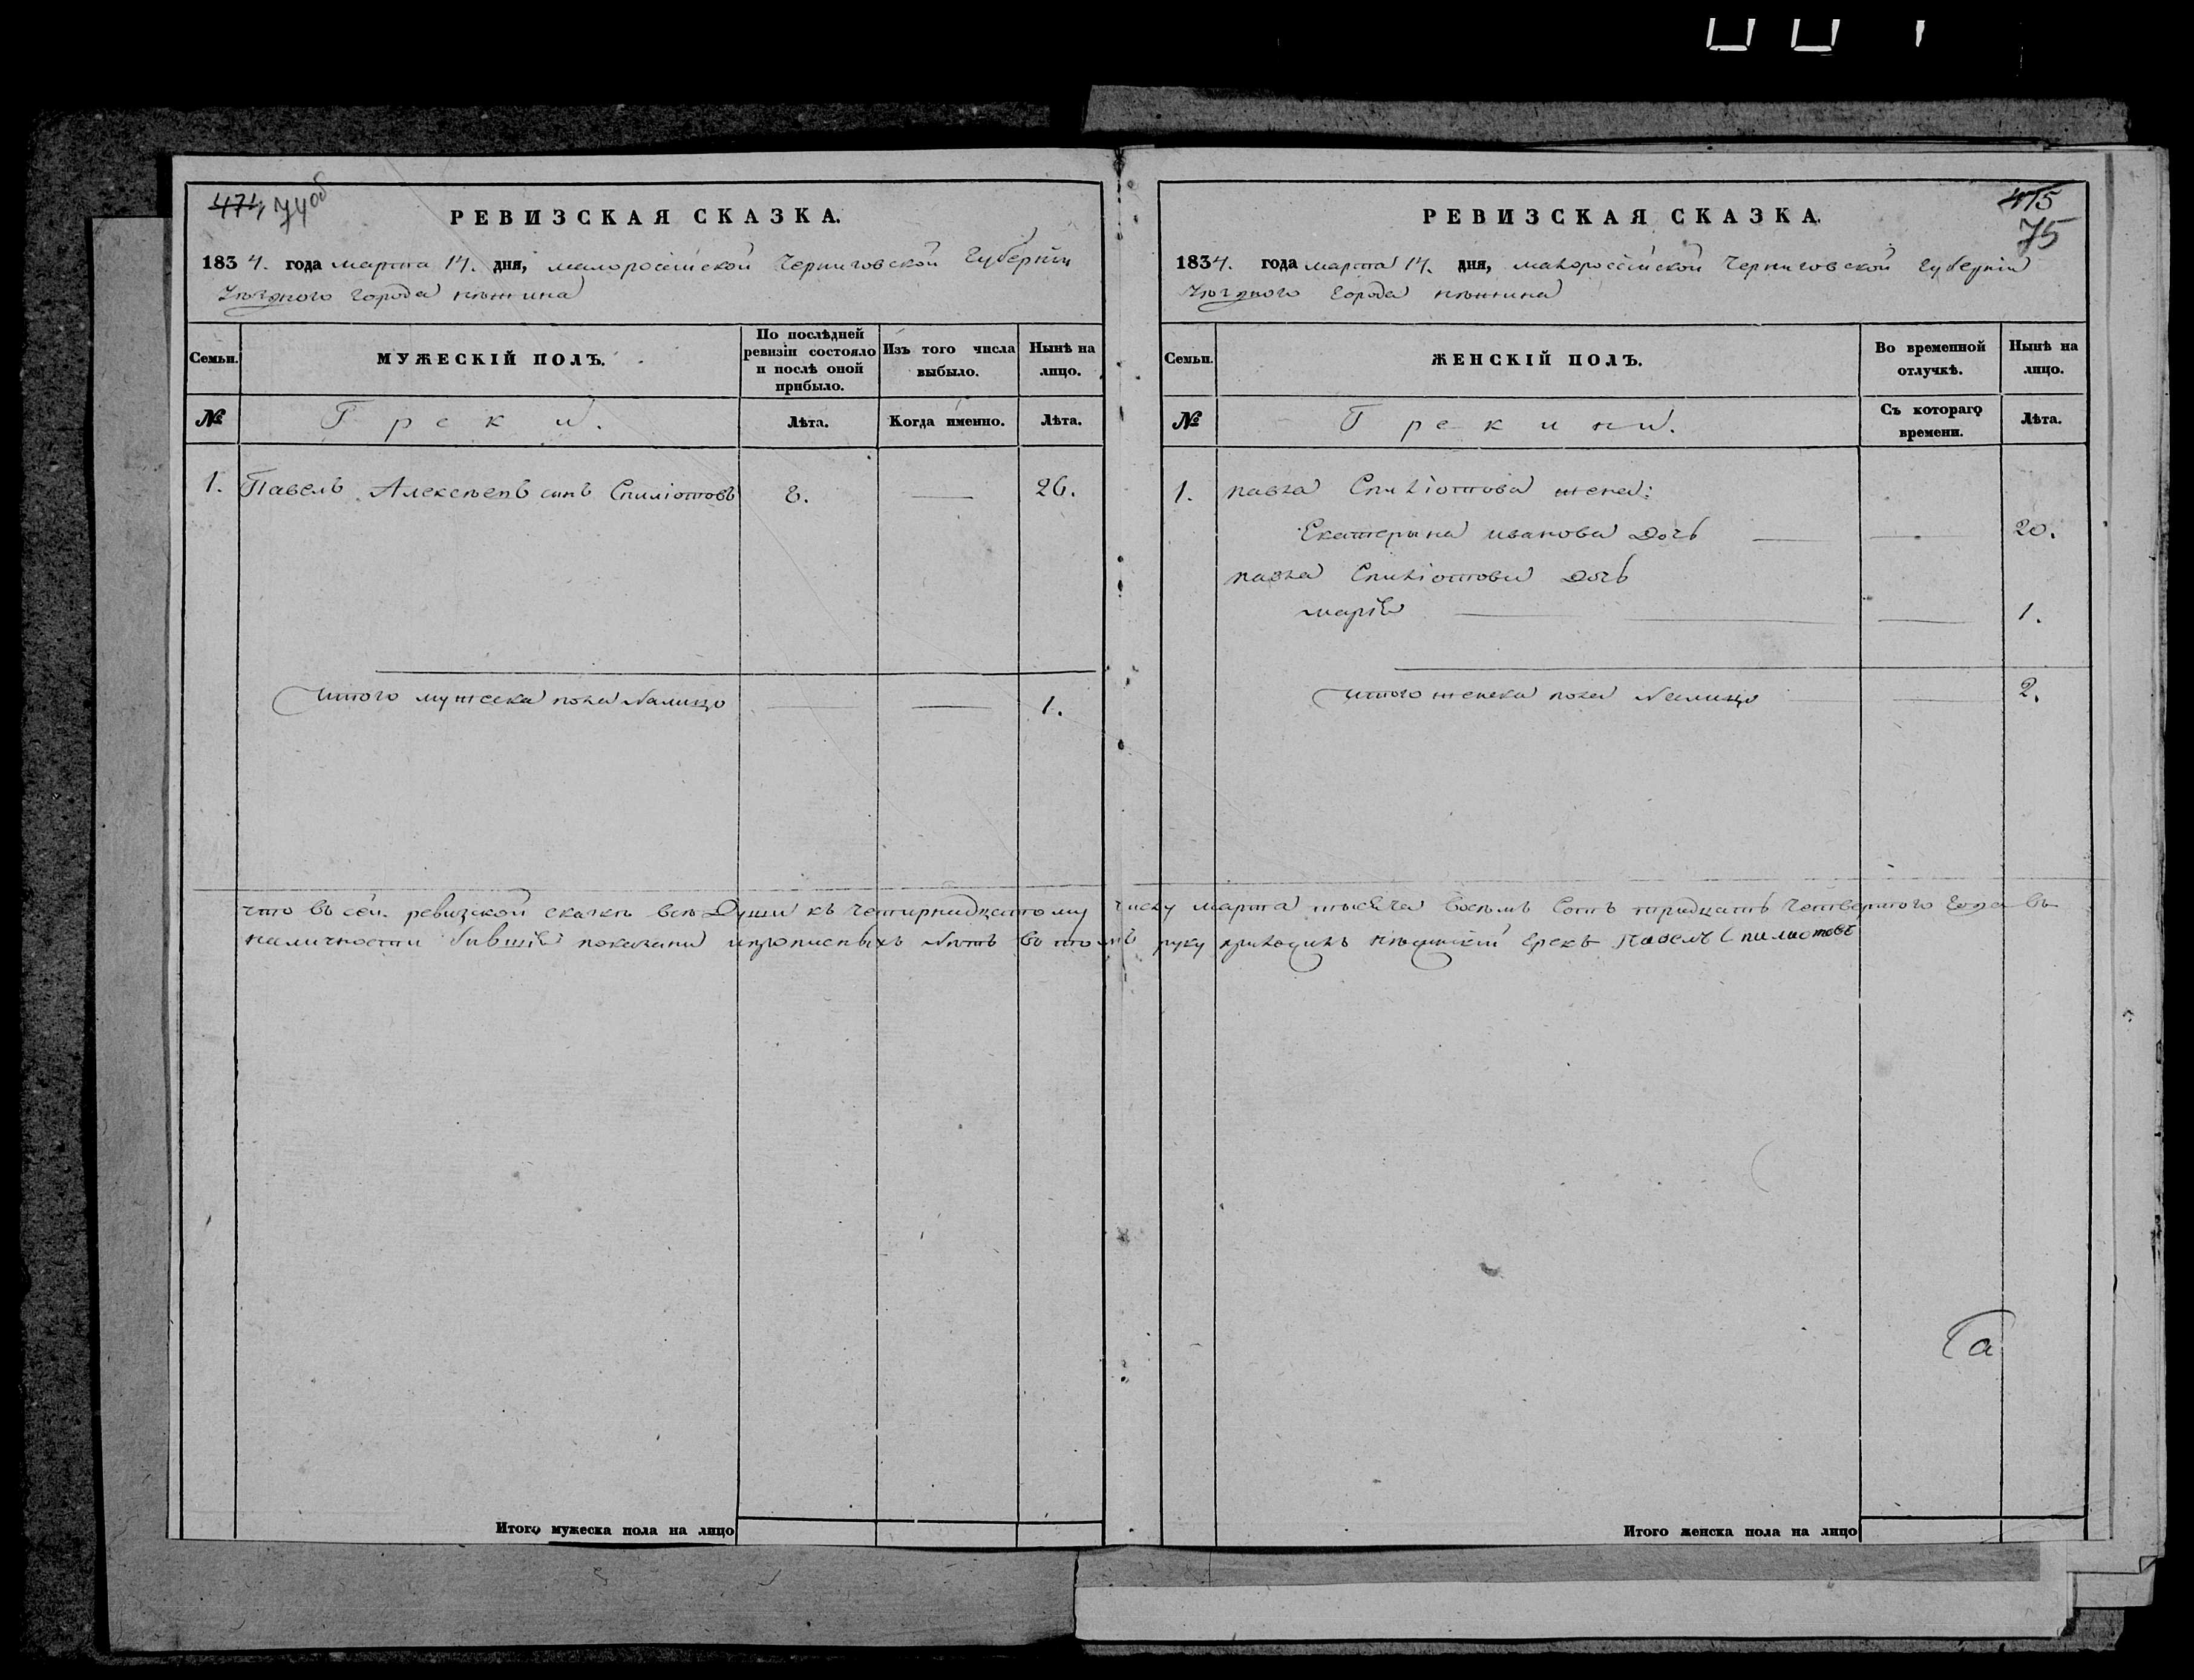 474 74об
РЕВИЗСКАЯ СКАЗКА.
1834. года марта 14. дня, малоросійской Черниговской Губерніи
уѣзднаго города нѣжина
Семьи.
МУЖЕСКІЙ ПОЛЪ.
По послѣдней ревизіи состояло и послѣ оной прибыло.
Изъ того числа выбыло.
Нынѣ на лицо.
№
Греки.
Лѣта.
Когда именно.
Лѣта.
1. Павелъ Алексѣевъ сынъ Спиліотовъ 8. — 26.
итого мужеска пола налицо — — 1.
что въ сей ревизской сказкѣ всѣ Души къ четирнидцатому числу марта тысяча восемъ сотъ тридцать четвертого года въ
наличности бившія показани и прописныхъ нѣтъ въ томъ руку приложилъ нѣжинскій грекъ Павелъ Спилиотовъ
Итого мужеска пола на лицо
475
75
РЕВИЗСКАЯ СКАЗКА.
1834. года марта 14. дня, малоросійской Черниговской губерніи
уѣзднаго города нѣжина
Семьи.
ЖЕНСКІЙ ПОЛЪ.
Во временной отлучкѣ.
Нынѣ на лицо.
№
Грекини.
Съ котораго времени.
Лѣта.
1. павла Спиліотова жена:
Екатерына иванова Дочь — — 20.
павла Спиліотова Дочь
марія — — 1.
итого женска пола налицо — — 2.
Итого женска пола на лицо